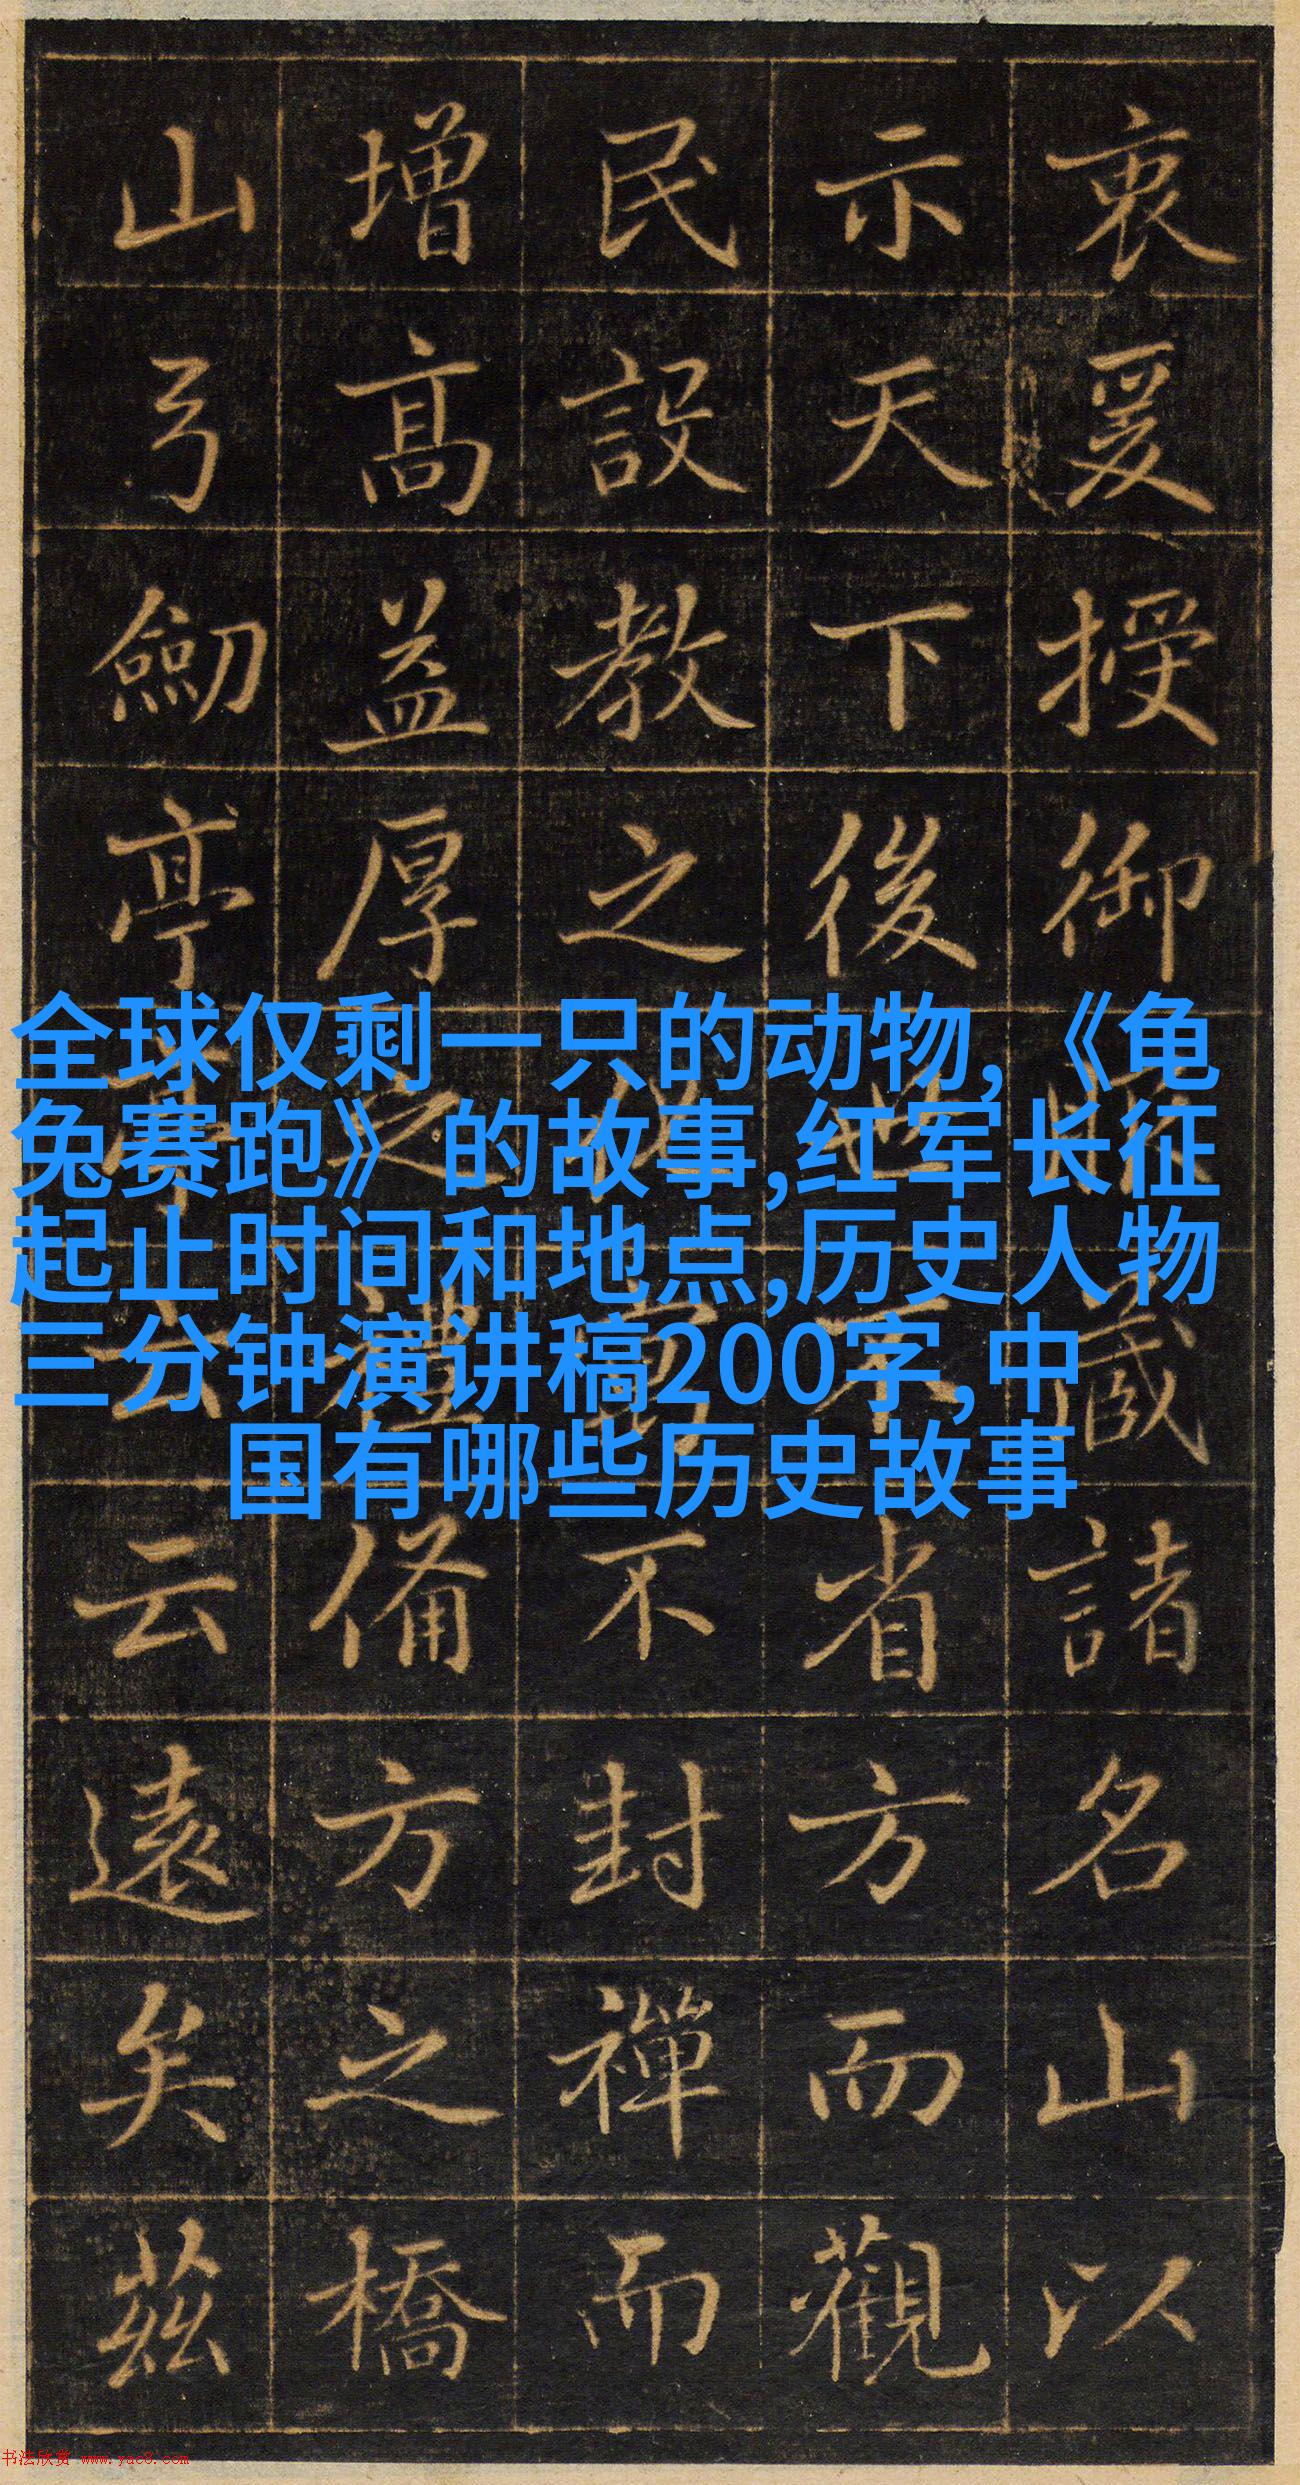 衷爰授御藏諸名山以
示天下後世不省方而觀
民設教之不封禪而
增高益厚之禮備方之橋
山弓劒亭亭云云遠矣茲
全球仅剩一只的动物,《龟
兔赛跑》的故事,红军长征
起止时间和地点,历史人物
三分钟演讲稿200字,中
国有哪些历史故事
书法欣赏 www.yac8.com